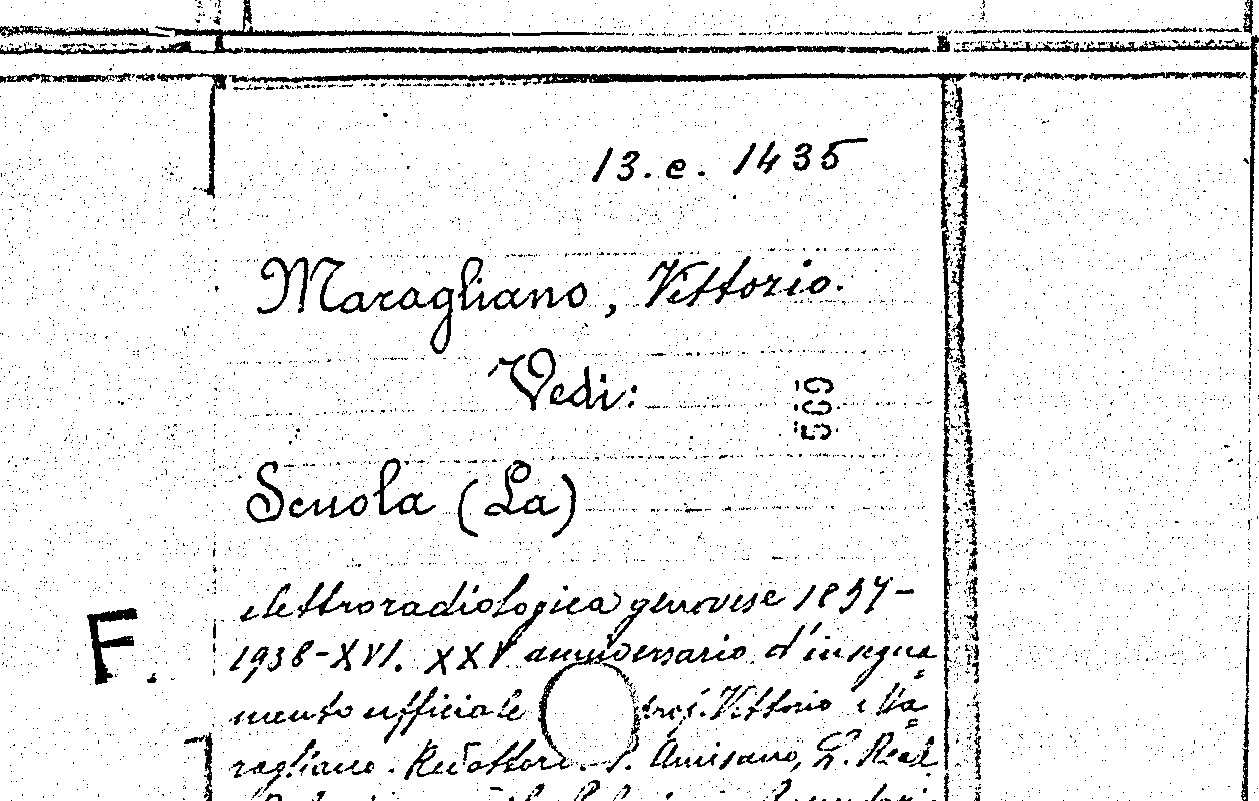 13.e. 1435
Maragliano, Vittorio.
Vedi:
509
Scuola (La)
elettroradiologica genovese 1897-
F.
1938-XVI. XXV anniversario d'insegna=
mento ufficiale prof. Vittorio Ma=
ragliano. Redattori. Amisano, L. Real